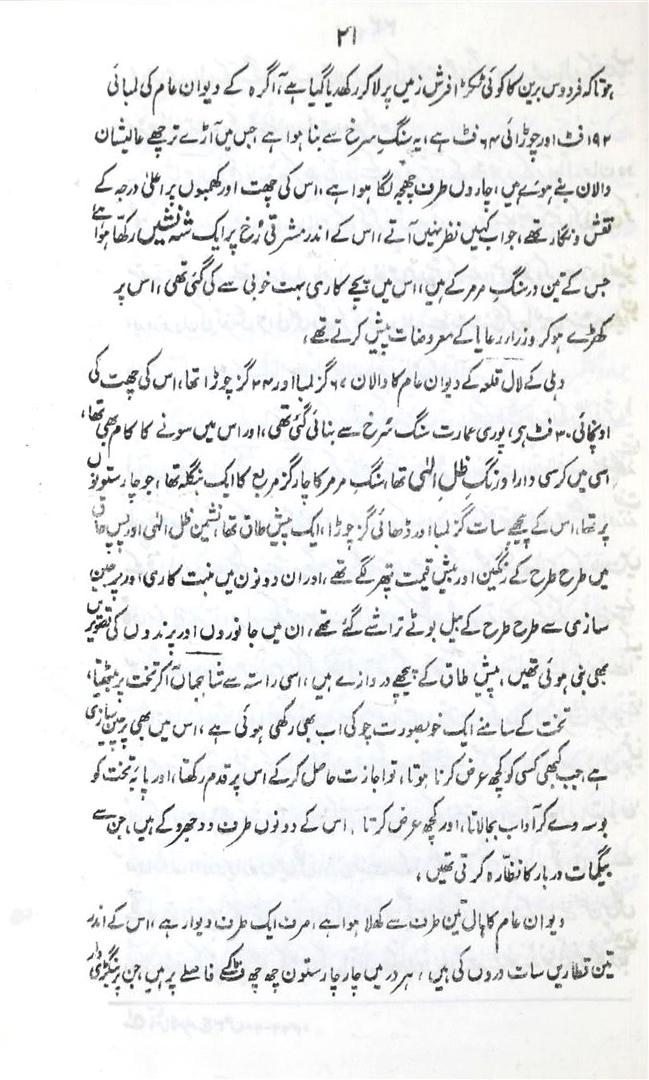 ۲۱
ہوتا کہ فردوس بریں کا کوئی ٹکڑا فرش زمیں پر لا کر رکھدیا گیا ہے، آگرہ کے دیوان عام کی لمبائی
۱۹۲ فٹ اور چوڑائی ۶۴ فٹ ہے، یہ سنگِ سرخ سے بنا ہوا ہے، جس میں آڑے ترچھے عالیشان
دالان بنے ہوئے ہیں، چاروں طرف چھجہ لگا ہوا ہے، اس کی چھت اور کھمبوں پر اعلیٰ درجہ کے
نقش و نگار تھے، جو اب کہیں نظر نہیں آتے، اس کے اندر مشرقی رُخ پر ایک شہ نشیں رکھا ہوا ہے
جس کے تین در سنگِ مرمر کے ہیں، اس میں پچے کاری بہت خوبی سے کی گئی تھی، اس پر
کھڑے ہو کر وزراء رعایا کے معروضات پیش کرتے تھے،
دہلی کے لال قلعہ کے دیوان عام کا دالان ۶۷ گز لمبا اور ۲۴ گز چوڑا تھا، اس کی چھت کی
اونچائی ۳۰ فٹ ہی، پوری عمارت سنگ سُرخ سے بنائی گئی تھی، اور اس میں سونے کا کام بھی تھا،
اسی میں کرسی دار اورنگِ ظلِ الٰہی تھا، سنگ مرمر کا چار گز مربع کا ایک بنگلہ تھا، جو چار ستونوں
پر تھا، اس کے پیچھے سات گز لمبا اور ڈھائی گز چوڑا، ایک پیش طاق تھا، نشیمن ظل الٰہی اور پس طاق
میں طرح طرح کے رنگین اور بیش قیمت پتھر لگے تھے، اور ان دونوں میں منبت کاری، اور پرچین
سازی سے طرح طرح کے بیل بوٹے تراشے گئے تھے، ان میں جانوروں اور پرندوں کی تصویریں
بھی بنی ہوئی تھیں، پیش طاق کے پیچھے دروازے ہیں، اسی راستہ سے شاہجہاں آکر تخت پر بیٹھتا،
تخت کے سامنے ایک خوبصورت چوکی اب بھی رکھی ہوئی ہے، اس میں بھی پرچین سازی
ہے، جب کبھی کسی کو کچھ عرض کرنا ہوتا، تو اجازت حاصل کر کے اس پر قدم رکھتا، اور پایۂ تخت کو
بوسہ دے کر آداب بجالاتا، اور کچھ عرض کرتا، اس کے دونوں طرف دو حجرو کے ہیں، جن سے
بیگمات دربار کا نظارہ کرتی تھیں،
دیوان عام کا ہال تین طرف سے کھلا ہوا ہے، صرف ایک طرف دیوار ہے، اس کے اندر
تین قطاریں سات دروں کی ہیں، ہر در میں چار چار ستون چھ چھ فٹ کے فاصلے پر ہیں، جن پر بنگڑی دار